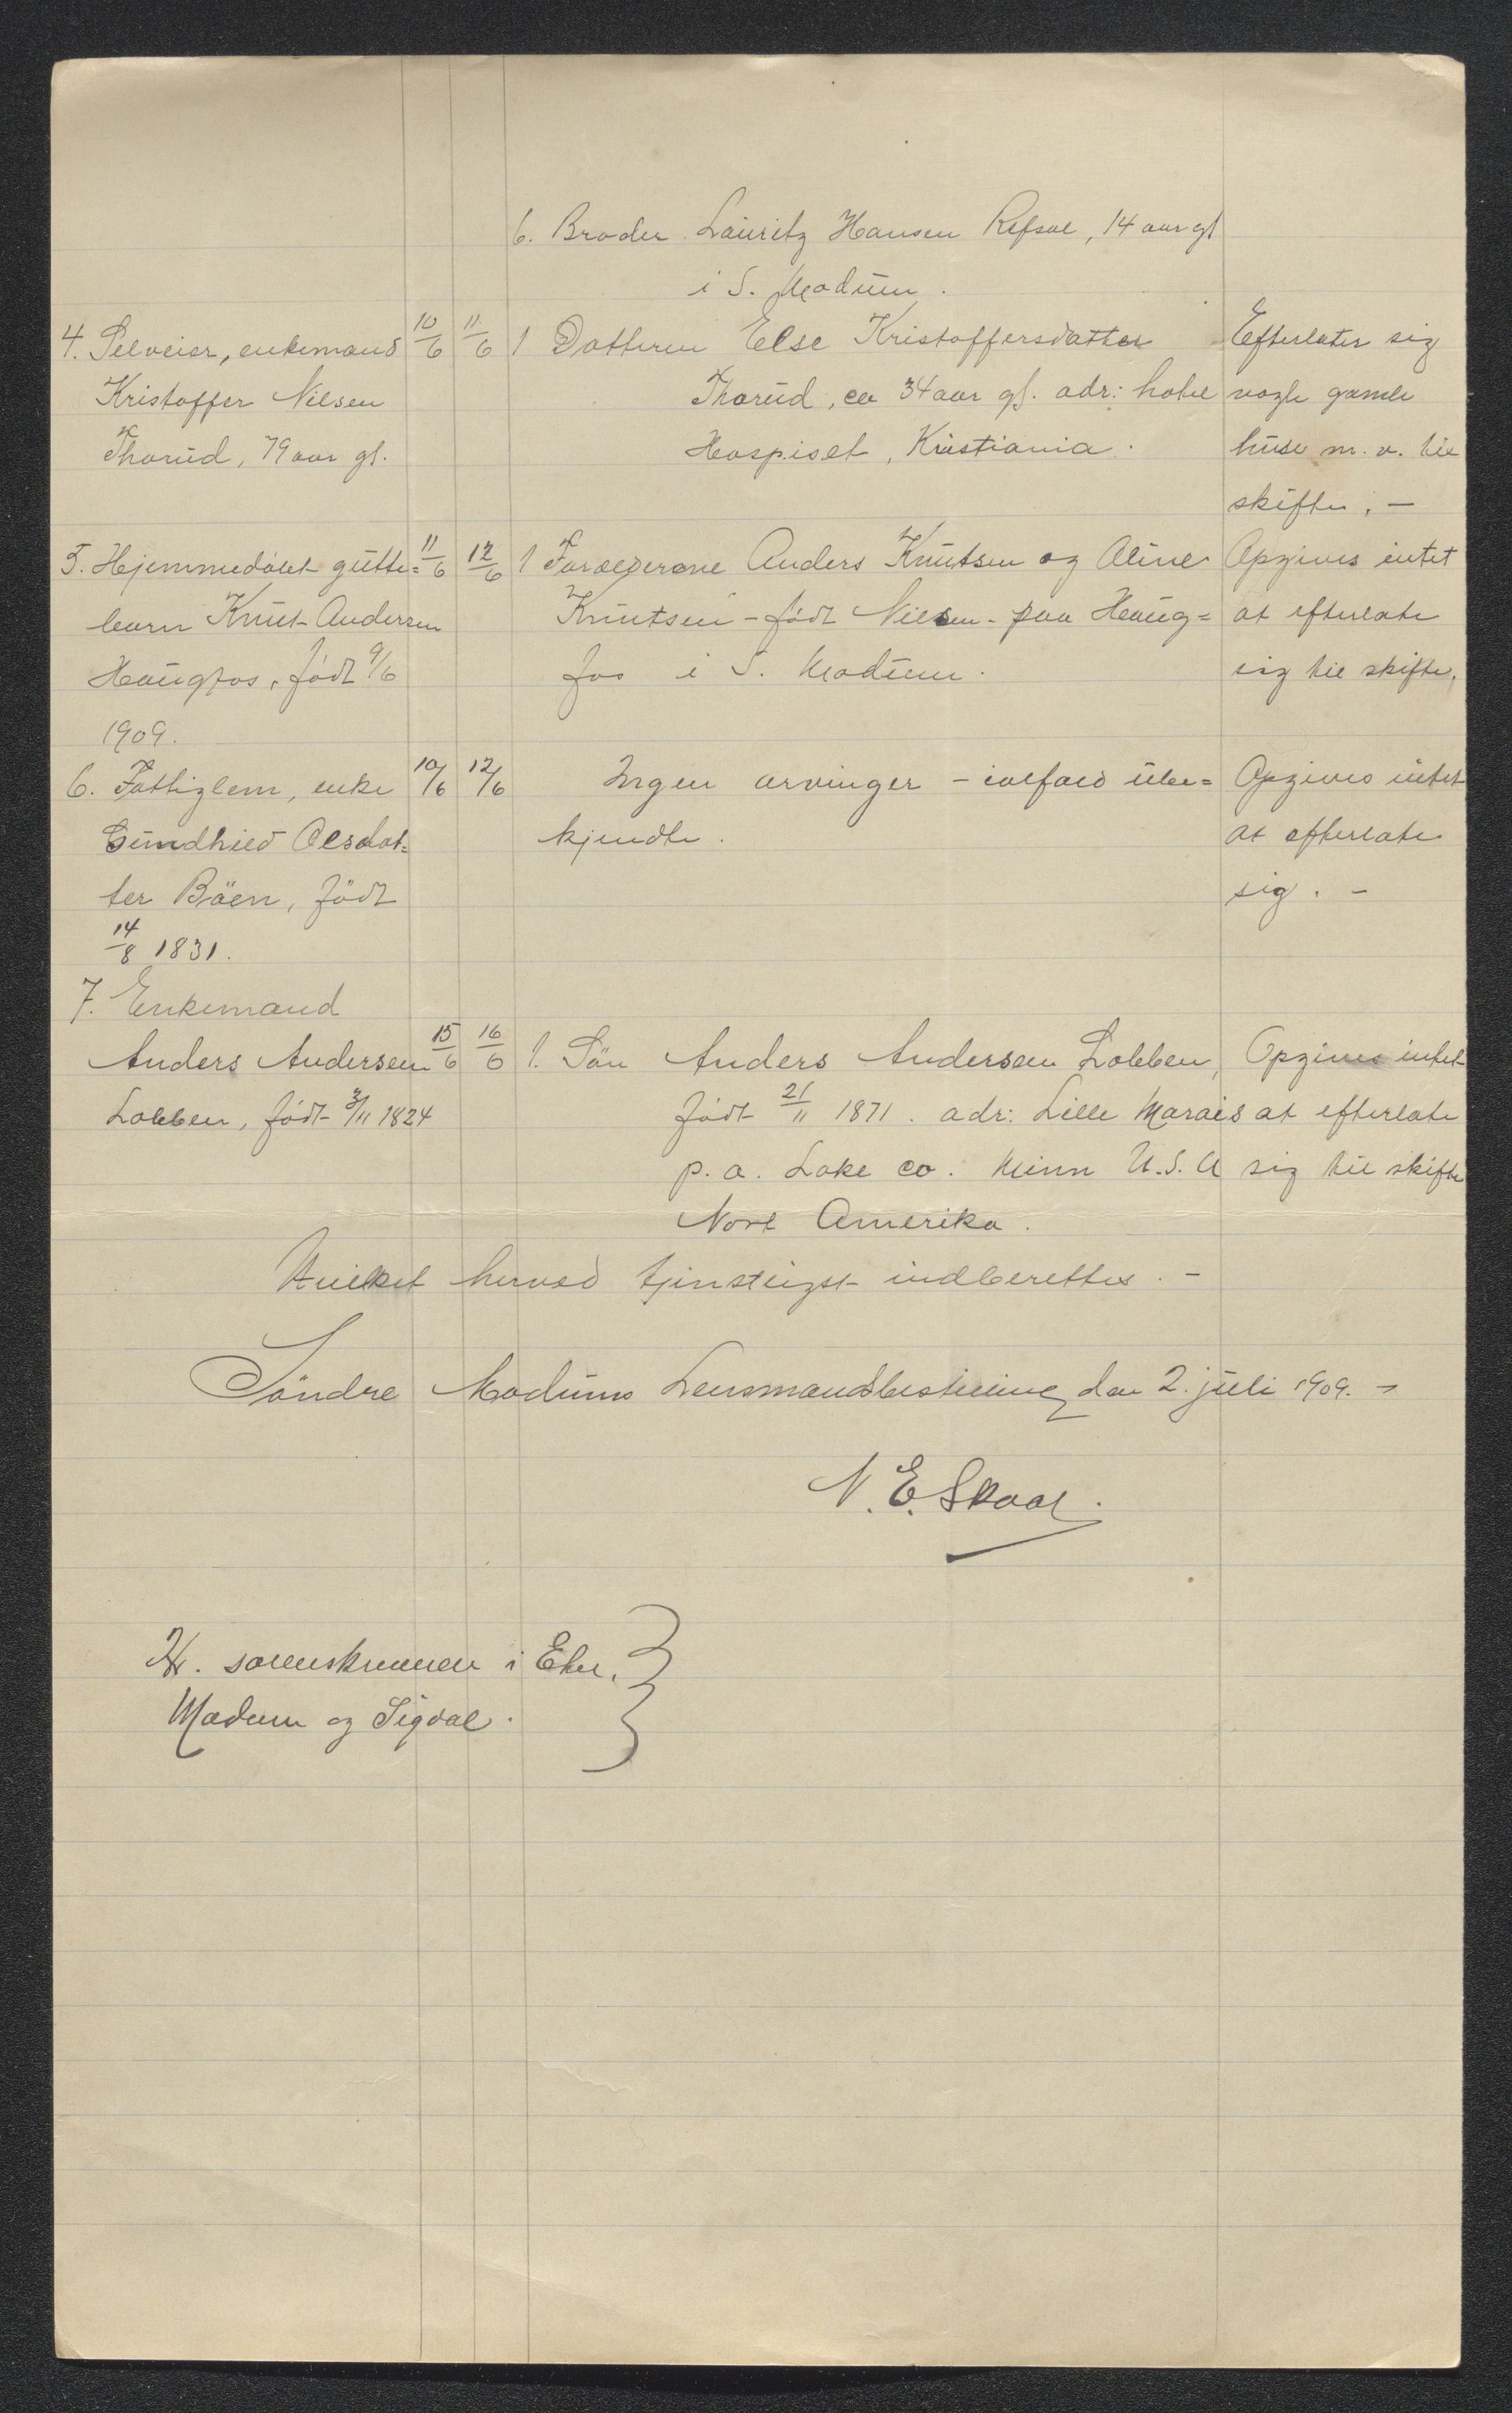 6. Broder Lauritz Hansen Refsal, 14 aar gl
i S. Modum.
4. Selveier, enkemand 10/6 11/6 1 Datteren Else Kristoffersdatter Efterlater sig
Kristoffer Nilsen Thorud, ca 34 aar gl. adr: hotel nogle gamle
Thorud, 79 aar gl. Hospiset, Kristiania. huse m. v. til
skifte. —
5. Hjemmedøbt gutte= 11/6 12/6 1 Forældrene Anders Knutsen og Aline Opgives intet
barn Knut Andersen Knutsen - født Nilsen - paa Haug= at efterlate
Haugfos, født 9/6 fos i S. Modum. sig til skifte.
1909.
6. Fattiglem, enke 10/6 12/6 Ingen arvinger - ialfald ube= Opgives intet
Gundhild Olsdat= kjendte. at efterlate
ter Böen, födt sig. —
14/8 1831.
7. Enkemand
Anders Andersen 15/6 16/6 1. Sön Anders Andersen Lobben, Opgives intet
Lobben, født 3/11 1824 født 21/11 1871. adr: Lille Marais at efterlate
p. o. Lake co. Minn U.S.A sig til skifte
Nord Amerika.
Hvilket herved tjenstligst indberettes. —
Söndre Modums Lensmandsbestilling den 2. juli 1909. —
N. E. Skaar.
Hr. sorenskriveren i Eker,
Modum og Sigdal.